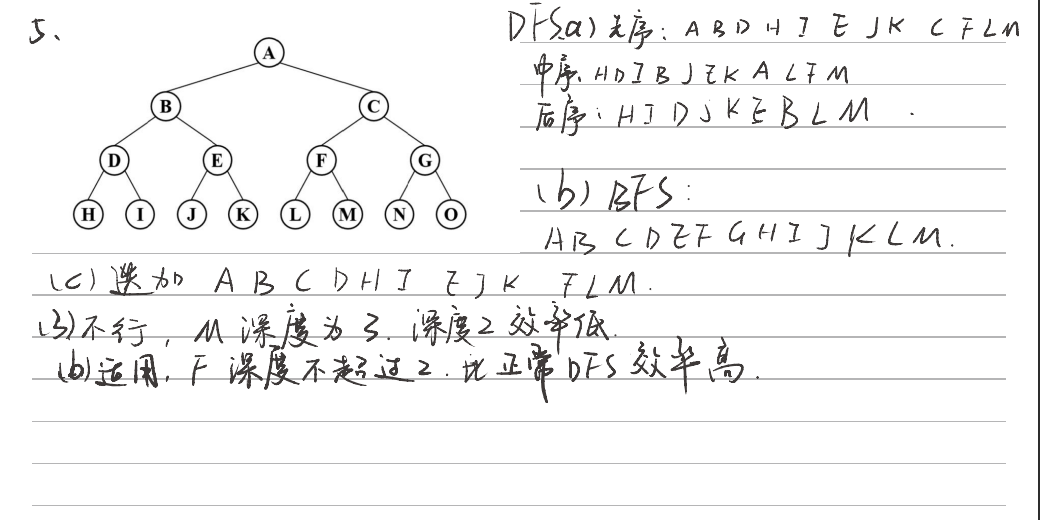 5、
A
B C
D E F G
H I J K L M N O
DFS(a) 先序: A B D H I E J K C F L M
中序: H D I B J E K A L F M
后序: H I D J K E B L M .
(b) BFS:
A B C D E F G H I J K L M.
(c) 迭加 A B C D H I E J K F L M.
(3) 不行, M 深度为 3. 深度2 效率低.
(b) 适用, F 深度不超过 2. 比正常 DFS 效率高.